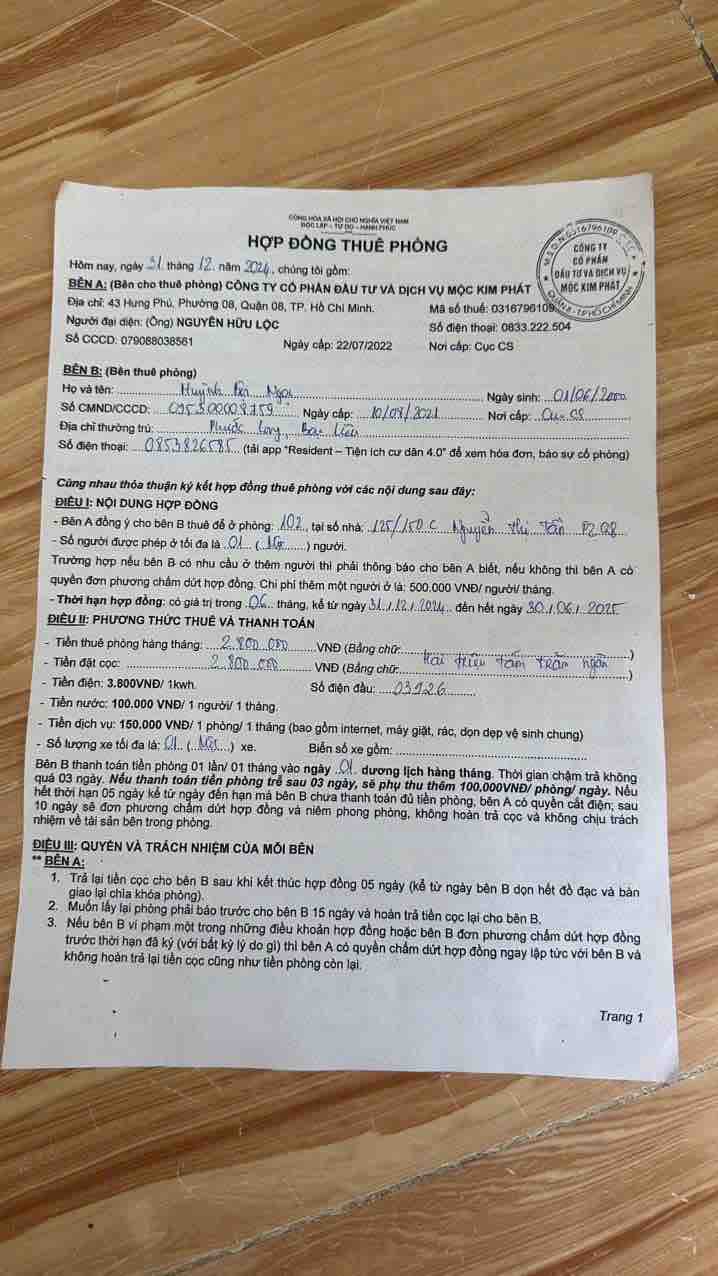 CỘNG HÒA XÃ HỘI CHỦ NGHĨA VIỆT NAM
ĐỘC LẬP - TỰ DO - HẠNH PHÚC
HỢP ĐỒNG THUÊ PHÒNG
Hôm nay, ngày 31 tháng 12 năm 2024, chúng tôi gồm:
BÊN A: (Bên cho thuê phòng) CÔNG TY CỔ PHẦN ĐẦU TƯ VÀ DỊCH VỤ MỘC KIM PHÁT
Địa chỉ: 43 Hưng Phú, Phường 08, Quận 08, TP. Hồ Chí Minh. Mã số thuế: 0316796109
Người đại diện: (Ông) NGUYỄN HỮU LỘC Số điện thoại: 0833.222.504
Số CCCD: 079088038561 Ngày cấp: 22/07/2022 Nơi cấp: Cục CS
M.S.D.N:0316796109
CÔNG TY
CỔ PHẦN
ĐẦU TƯ VÀ DỊCH VỤ
MỘC KIM PHÁT
QUẬN 8 - TP.HỒ CHÍ MINH
BÊN B: (Bên thuê phòng)
Họ và tên: Huỳnh Ngọc Ngày sinh: 01/06/2000
Số CMND/CCCD: 095300008759 Ngày cấp: 10/08/2021 Nơi cấp: Cục CS
Địa chỉ thường trú: Phước Long, Bạc Liêu
Số điện thoại: 0853826585 (tải app "Resident – Tiện ích cư dân 4.0" để xem hóa đơn, báo sự cố phòng)
Cùng nhau thỏa thuận ký kết hợp đồng thuê phòng với các nội dung sau đây:
ĐIỀU I: NỘI DUNG HỢP ĐỒNG
- Bên A đồng ý cho bên B thuê để ở phòng: 102, tại số nhà: 125/150C Nguyễn Thị Tần P2 Q8
- Số người được phép ở tối đa là 01 (Một) người.
Trường hợp nếu bên B có nhu cầu ở thêm người thì phải thông báo cho bên A biết, nếu không thì bên A có
quyền đơn phương chấm dứt hợp đồng. Chi phí thêm một người ở là: 500.000 VNĐ/ người/ tháng.
- Thời hạn hợp đồng: có giá trị trong 06 tháng, kể từ ngày 31/12/2024 đến hết ngày 30/06/2025
ĐIỀU II: PHƯƠNG THỨC THUÊ VÀ THANH TOÁN
- Tiền thuê phòng hàng tháng: 2.800.000 VNĐ (Bằng chữ: )
- Tiền đặt cọc: 2.800.000 VNĐ (Bằng chữ: Hai triệu tám trăm ngàn )
- Tiền điện: 3.800VNĐ/ 1kwh. Số điện đầu: 03926
- Tiền nước: 100.000 VNĐ/ 1 người/ 1 tháng.
- Tiền dịch vụ: 150.000 VNĐ/ 1 phòng/ 1 tháng (bao gồm internet, máy giặt, rác, dọn dẹp vệ sinh chung)
- Số lượng xe tối đa là: 01 (Một) xe. Biển số xe gồm:
Bên B thanh toán tiền phòng 01 lần/ 01 tháng vào ngày 01 dương lịch hàng tháng. Thời gian chậm trả không
quá 03 ngày. Nếu thanh toán tiền phòng trễ sau 03 ngày, sẽ phụ thu thêm 100.000VNĐ/ phòng/ ngày. Nếu
hết thời hạn 05 ngày kể từ ngày đến hạn mà bên B chưa thanh toán đủ tiền phòng, bên A có quyền cắt điện; sau
10 ngày sẽ đơn phương chấm dứt hợp đồng và niêm phong phòng, không hoàn trả cọc và không chịu trách
nhiệm về tài sản bên trong phòng.
ĐIỀU III: QUYỀN VÀ TRÁCH NHIỆM CỦA MỖI BÊN
** BÊN A:
1. Trả lại tiền cọc cho bên B sau khi kết thúc hợp đồng 05 ngày (kể từ ngày bên B dọn hết đồ đạc và bàn
giao lại chìa khóa phòng).
2. Muốn lấy lại phòng phải báo trước cho bên B 15 ngày và hoàn trả tiền cọc lại cho bên B.
3. Nếu bên B vi phạm một trong những điều khoản hợp đồng hoặc bên B đơn phương chấm dứt hợp đồng
trước thời hạn đã ký (với bất kỳ lý do gì) thì bên A có quyền chấm dứt hợp đồng ngay lập tức với bên B và
không hoàn trả lại tiền cọc cũng như tiền phòng còn lại.
Trang 1